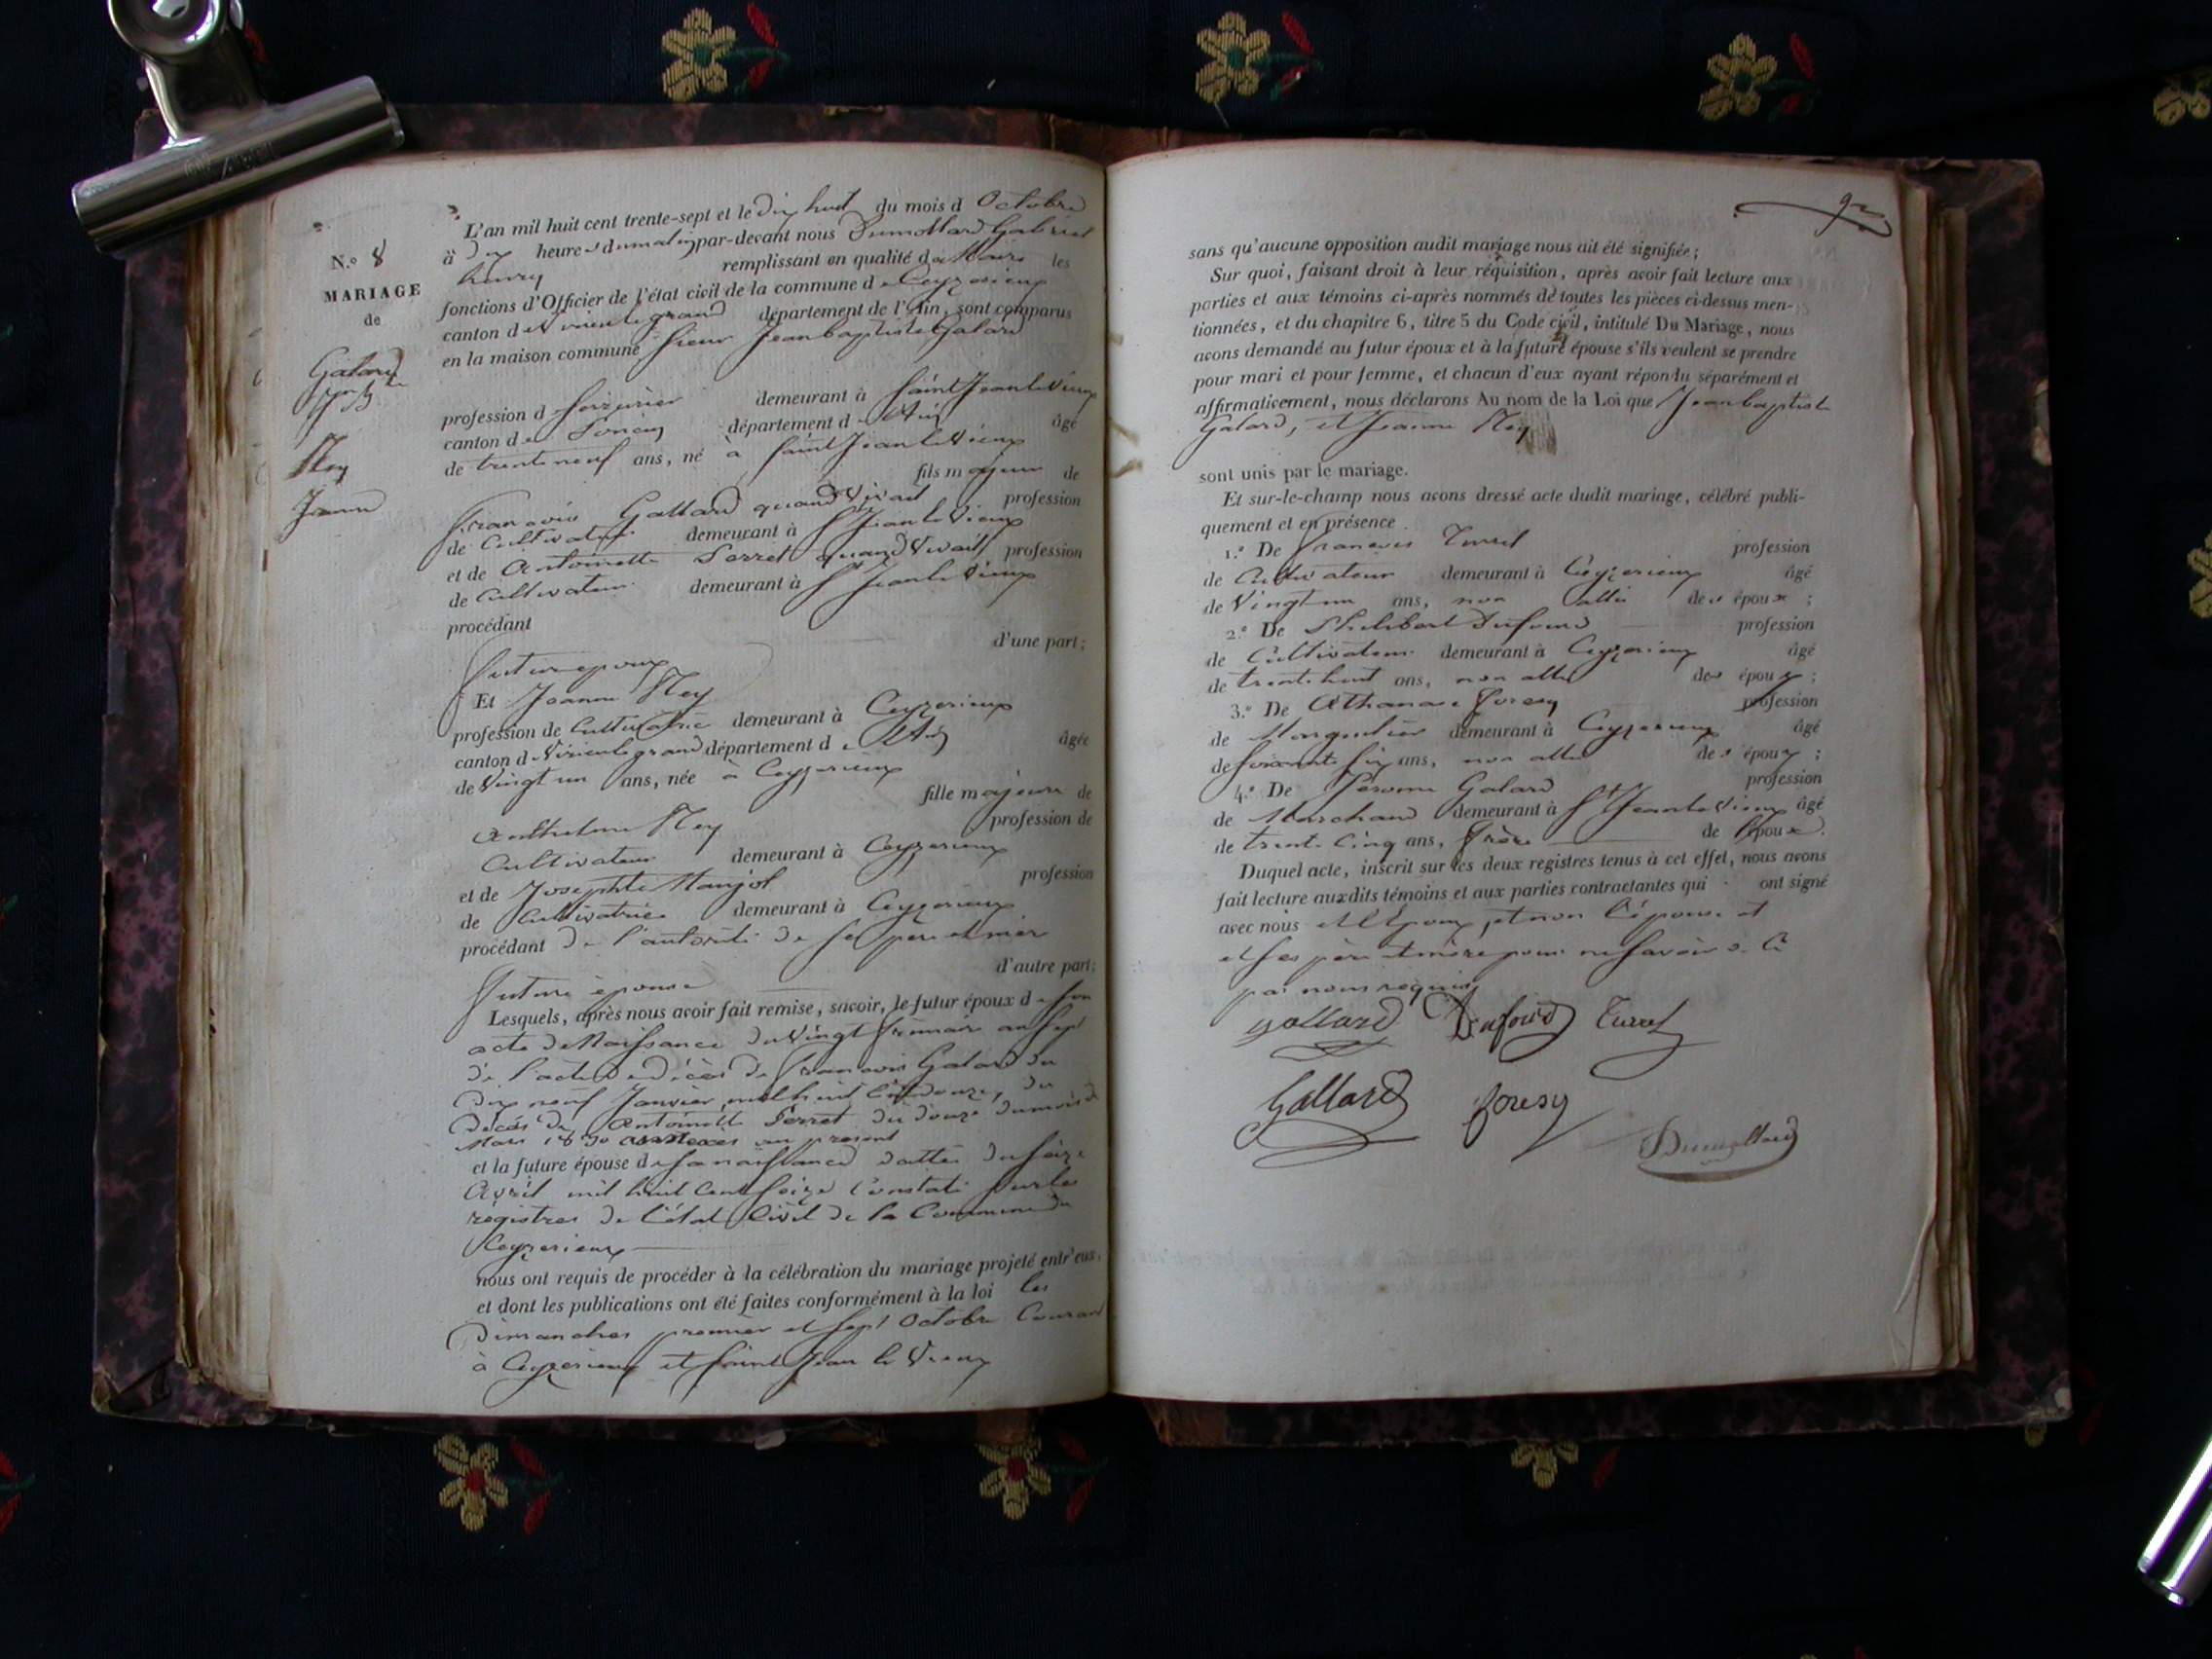 N.º 8
MARIAGE
de
Galard
Jn Bte
Rey
Jeanne
L'an mil huit cent trente-sept et le dix huit du mois d Octobre
à dix heures du matin par-devant nous Dumollard Gabriel
henry remplissant en qualité de Maire les
fonctions d'Officier de l'état civil de la commune de Ceyzerieux
canton de virieu le grand département de l'Ain, sont comparus
en la maison commune sieur Jean baptiste Galard
profession d demeurant à Saint Jean le Vieux
canton de Poncin département de l'Ain âgé
de trente neuf ans, né à Saint Jean le Vieux
fils majeur de
francois Gallard quand vivait profession
de Cultivateur demeurant à St Jean le Vieux
et de Antoinette Perret quand vivait profession
de Cultivateur demeurant à St Jean le Vieux
procédant
d'une part;
futur époux
Et Jeanne Rey
profession de Cultivatrice demeurant à Ceyzerieux
canton de Virieu le grand département de l'Ain âgée
de Vingt un ans, née à Ceyzerieux
fille majeure de
Anthelme Rey profession de
Cultivateur demeurant à Ceyzerieux
et de Josephte Manjot profession
de Cultivatrice demeurant à Ceyzerieux
procédant de l'autorité de ses père et mère
d'autre part;
future épouse
Lesquels, après nous avoir fait remise, savoir, le futur époux de son
acte de Naissance du Vingt frimaire an sept
de l'acte de décès de francois Galard du
dix neuf Janvier mil huit cent douze, du
décès de Antoinette Perret du douze du mois de
Mars 1830 annexés au présent
et la future épouse de sa naissance datté du seize
Avril mil huit cent seize constaté sur les
régistres de l'état Civil de la Commune de
Ceyzerieux
nous ont requis de procéder à la célébration du mariage projeté entr'eux,
et dont les publications ont été faites conformément à la loi les
Dimanches premier et sept Octobre Courant
à Ceyzerieux et Saint Jean le Vieux
92
sans qu'aucune opposition audit mariage nous ait été signifiée;
Sur quoi, faisant droit à leur réquisition, après avoir fait lecture aux
parties et aux témoins ci-après nommés de toutes les pièces ci-dessus men-
tionnées, et du chapitre 6, titre 5 du Code civil, intitulé Du Mariage, nous
avons demandé au futur époux et à la future épouse s'ils veulent se prendre
pour mari et pour femme, et chacun d'eux ayant répondu séparément et
affirmativement, nous déclarons Au nom de la Loi que Jean baptiste
Galard, et Jeanne Rey
sont unis par le mariage.
Et sur-le-champ nous avons dressé acte dudit mariage, célébré publi-
quement et en présence
1.º De francois Turrel profession
de Cultivateur demeurant à Ceyzerieux âgé
de Vingt un ans, non allié des époux;
2.º De Philibert Dufourd profession
de Cultivateur demeurant à Ceyzerieux âgé
de trente huit ans, non allié des époux;
3.º De Athanase foresy profession
de Marguilier demeurant à Ceyzerieux âgé
de soixante six ans, non allié des époux;
4.º De Jérome Galard profession
de Marchand demeurant à St Jean le Vieux âgé
de trente Cinq ans, frère de l'époux.
Duquel acte, inscrit sur les deux registres tenus à cet effet, nous avons
fait lecture auxdits témoins et aux parties contractantes qui ont signé
avec nous et l'Epoux, et non l'épouse et
et ses père et mère pour ne savoir à Ce
par nous requis
gallard Dufourd Turrel
Gallard foresy
Dumollard